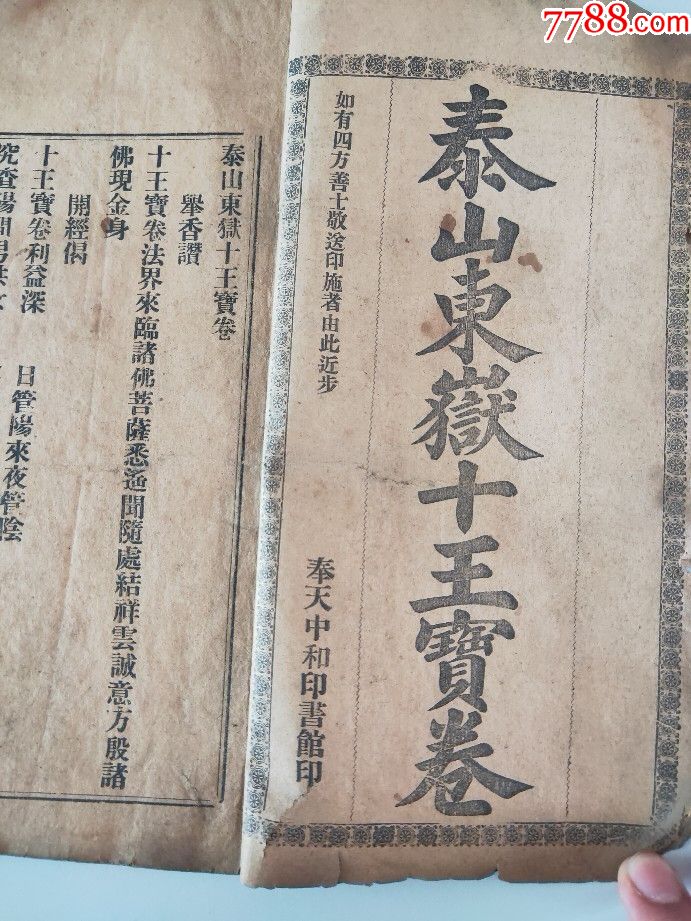 7788.com
泰山東嶽十王寶卷
如有四方善士敬送印施者由此近步
奉天中和印書館印
泰山東嶽十王寶卷
舉香讚
十王寶卷法界來臨諸佛菩薩悉遙聞隨處結祥雲誠意方殷諸
佛現金身
開經偈
十王寶卷利益深
日管陽來夜管陰
究查陽間男